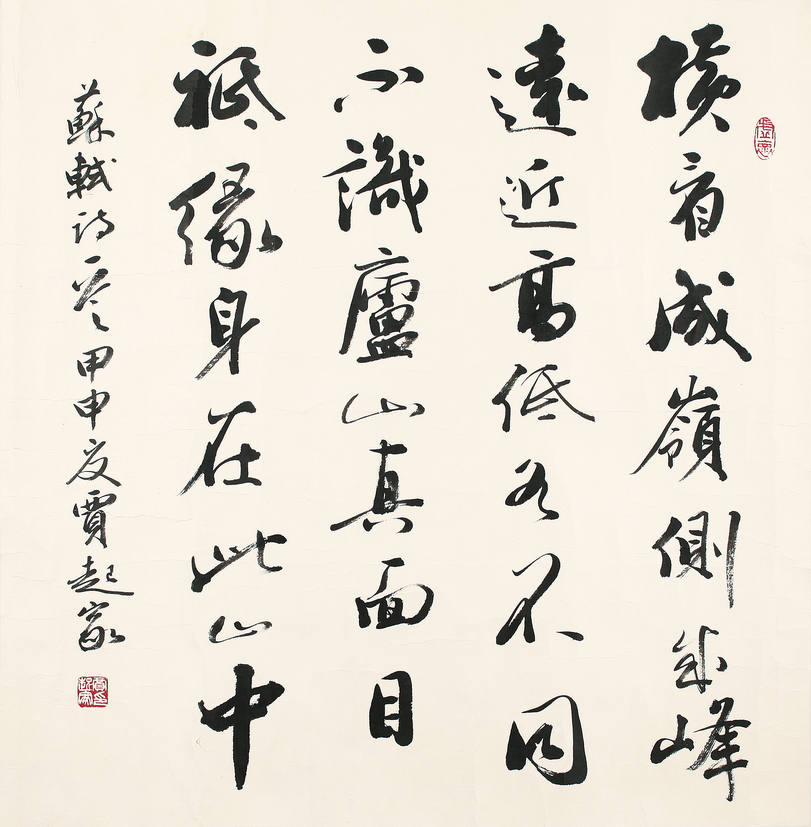 橫看成嶺側成峰
遠近高低各不同
不識廬山真面目
祗緣身在此山中
蘇軾詩一首甲申夏賈起家